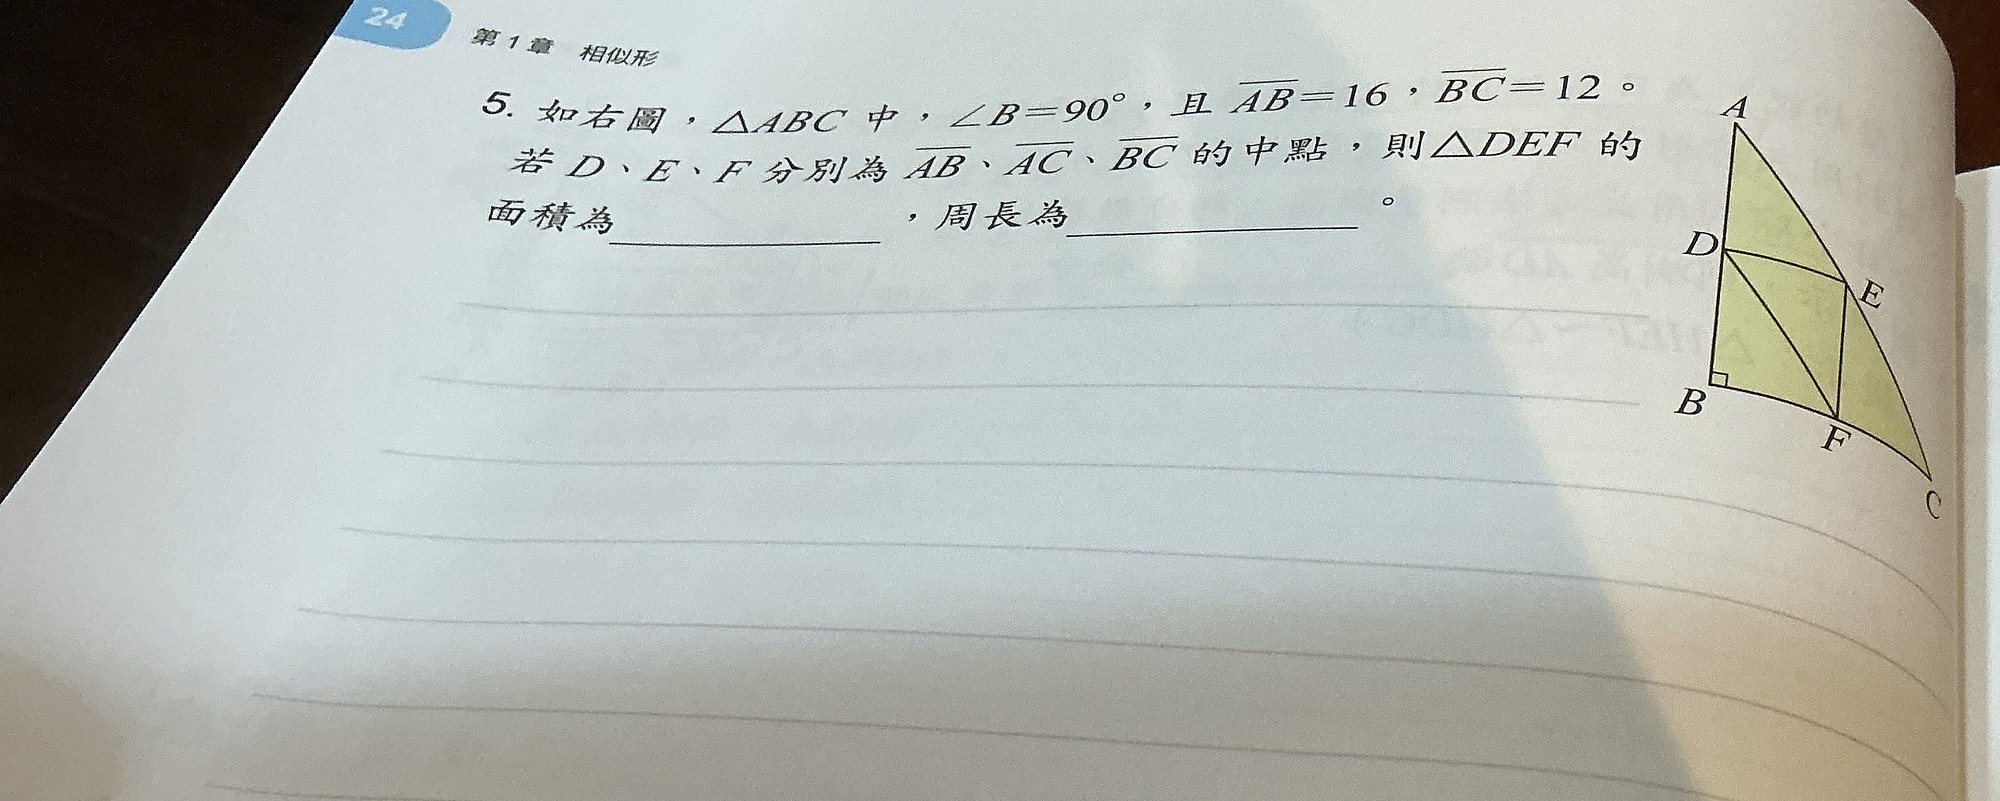 24
第1章 相似形
5. 如右圖，△ABC 中，∠B=90°，且 \overline{AB}=16，\overline{BC}=12。
若 D、E、F 分別為 \overline{AB}、\overline{AC}、\overline{BC} 的中點，則△DEF 的
面積為__________，周長為__________。
A
D
E
B
F
C